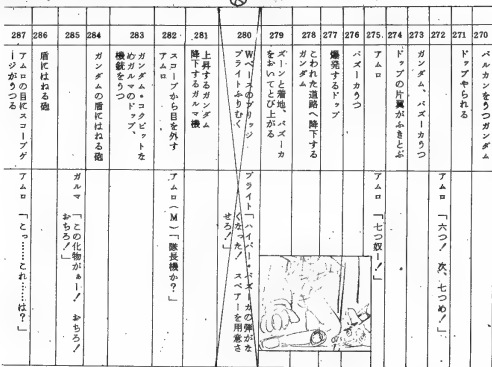 270
バルカンをうつガンダム
271
ドップやられる
272
アムロ
アムロ「六つ! 次、七つめ!」
273
ガンダム、バズーカうつ
274
ドップの片翼がふきとぶ
275
アムロ
アムロ「七つ奴ー!」
276
バズーカうつ
277
爆発するドップ
278
こわれた道路へ降下する
ガンダム
279
ズーンと着地、バズーカ
をおいてとび上がる
280
Wベースのブリッジ
ブライトふりむく
ブライト「ハイパー・バズーカの弾がな
くなった! スペアーを用意さ
せろ!」
281
上昇するガンダム
降下するガルマ機
282
スコープから目を外す
アムロ
アムロ(M)「隊長機か?」
283
ガンダム・コクピットな
めガルマのドップ、
機銃をうつ
284
ガンダムの盾にはねる砲
285
ガルマ
ガルマ「この化物がぁー! おちろ!
おちろ!」
286
盾にはねる砲
287
アムロの目にスコープゲ
ージがうつる
アムロ「こっ……これ……は?」